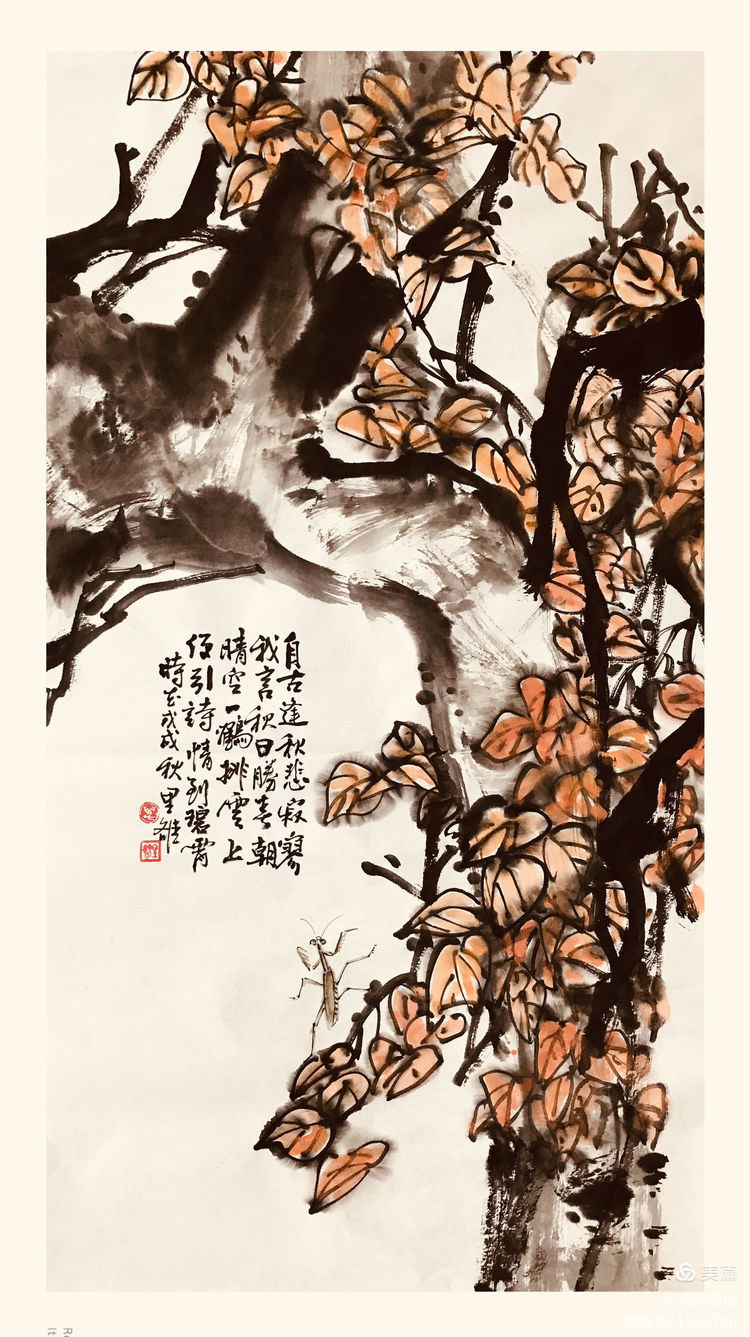 自古逢秋悲寂寥
我言秋日勝春朝
晴空一鶴排雲上
便引詩情到碧霄
時在戊戌秋里
美篇